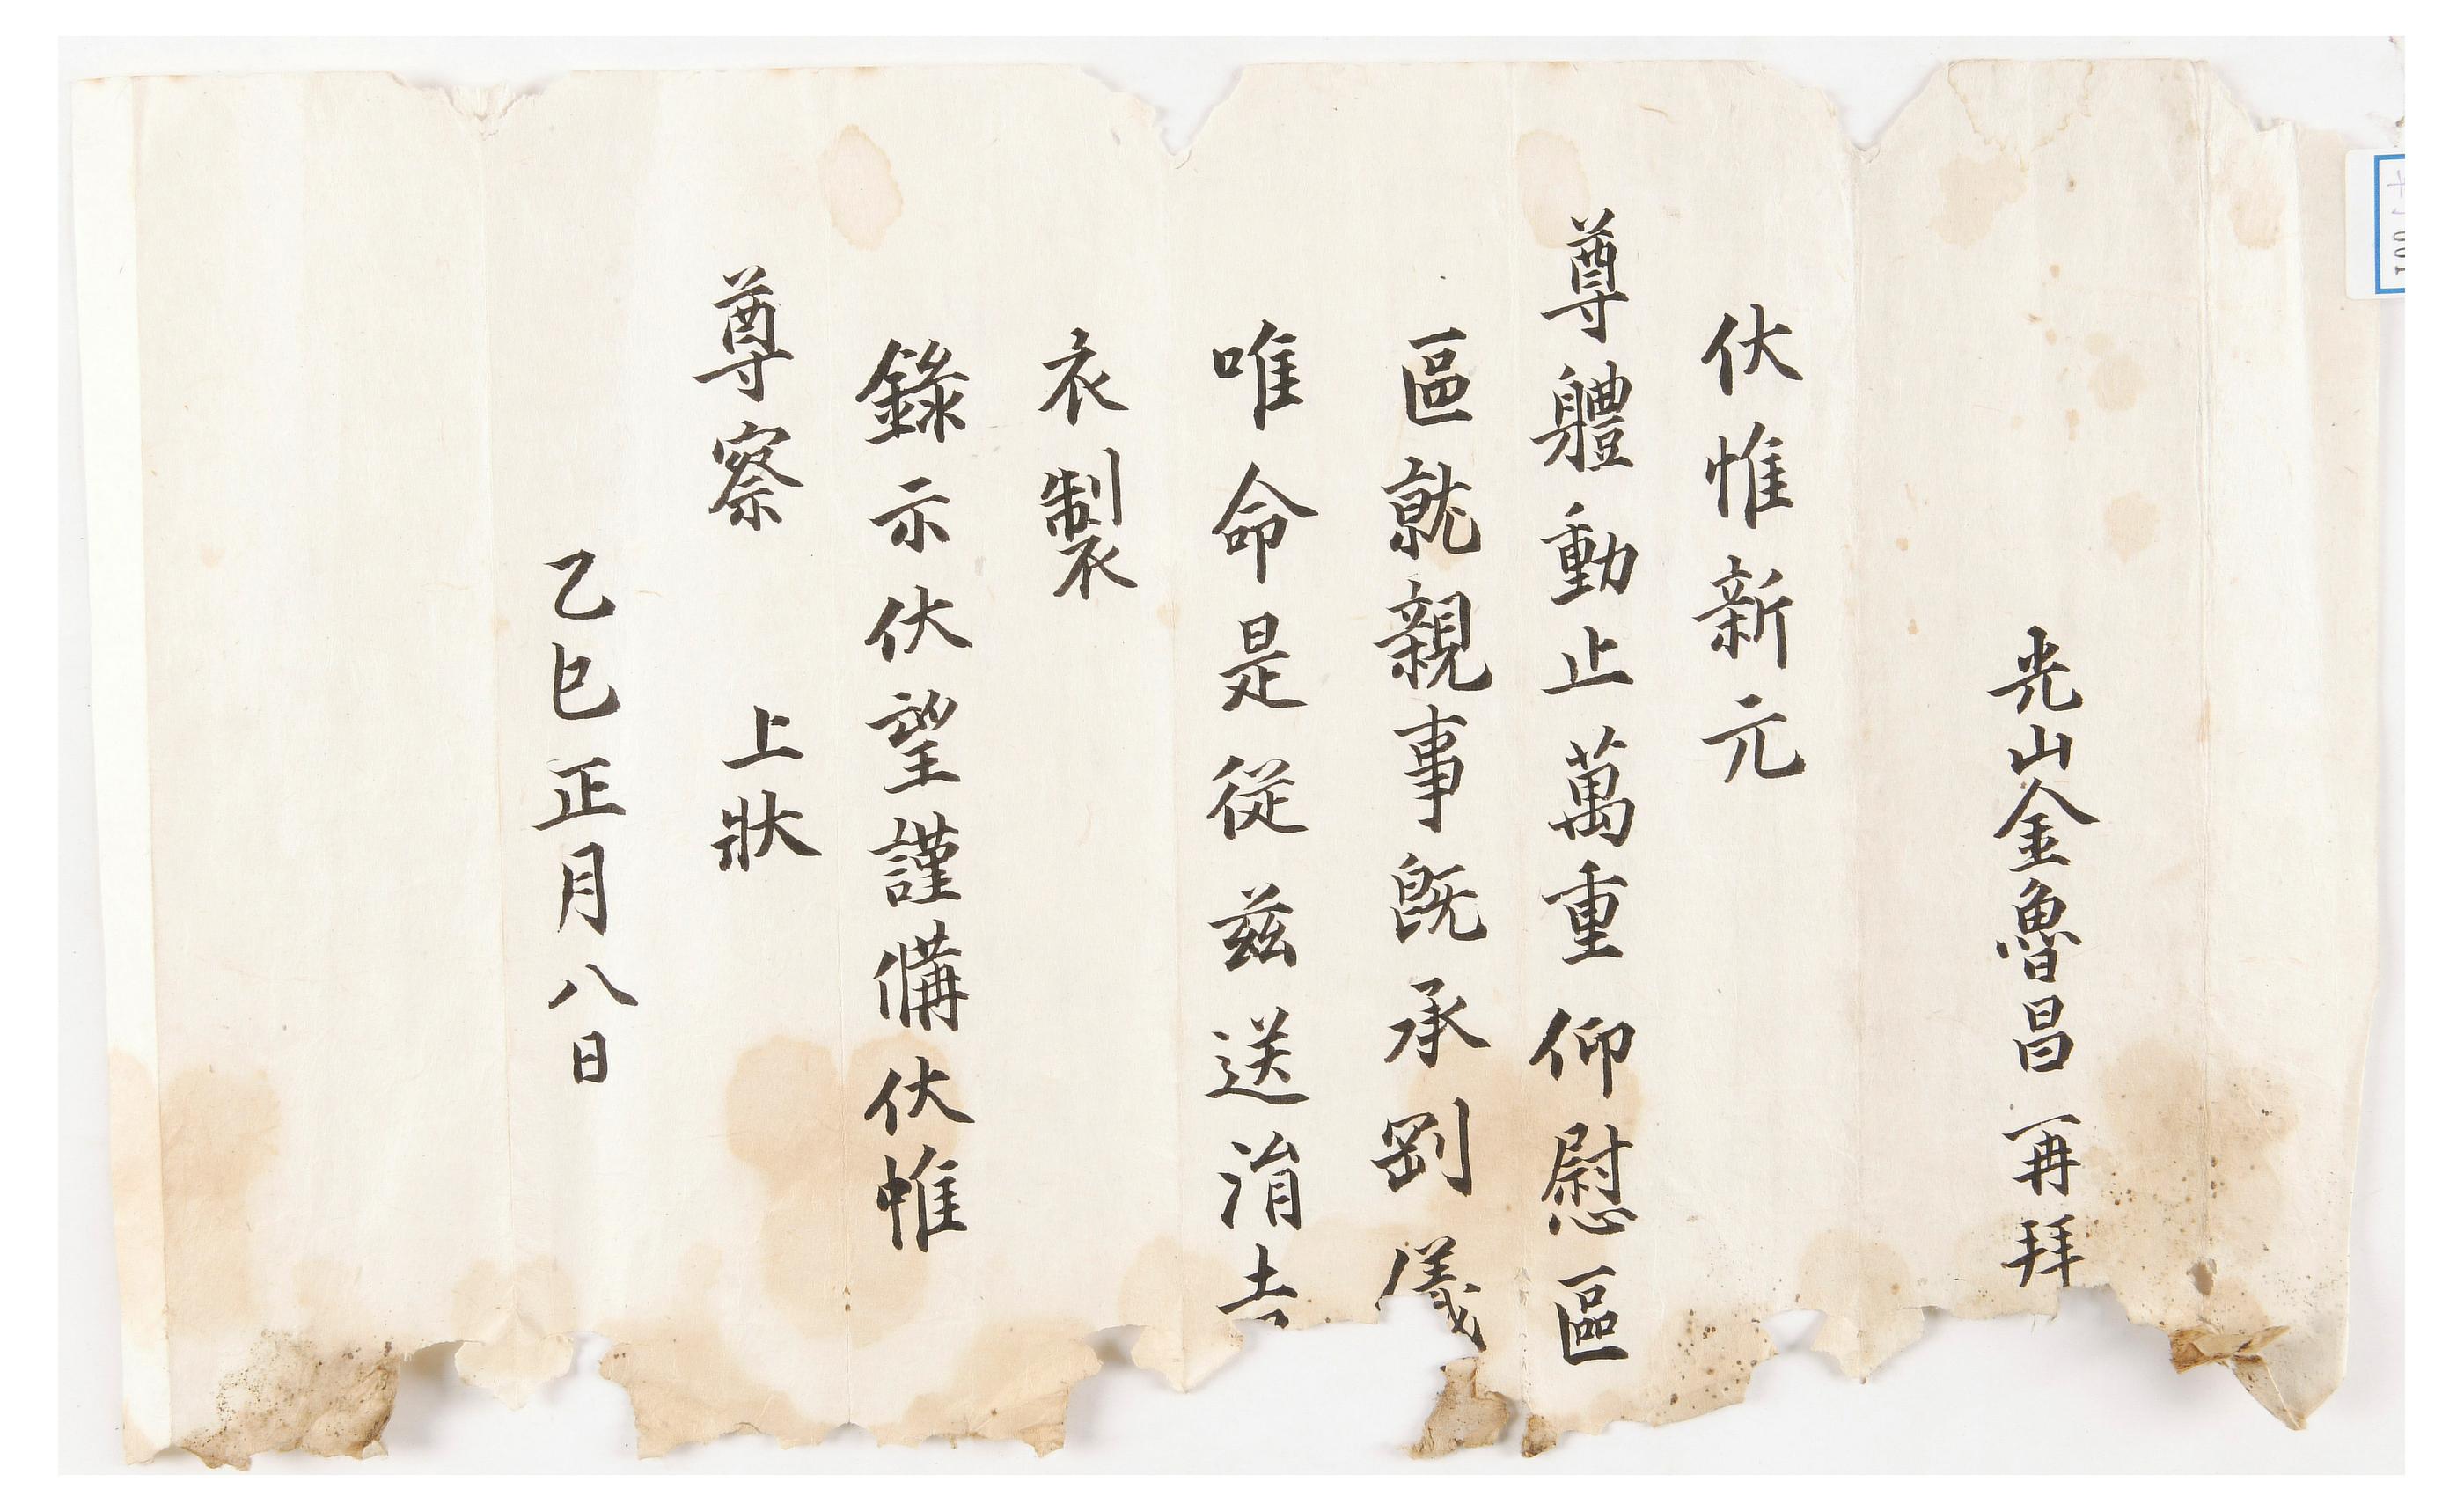 光山金魯昌再拜
伏惟新元
尊軆動止萬重仰慰區
區就親事旣承剛儀
唯命是從玆送涓吉
衣製
錄示伏望謹備伏惟
尊察 上狀
乙巳正月八日